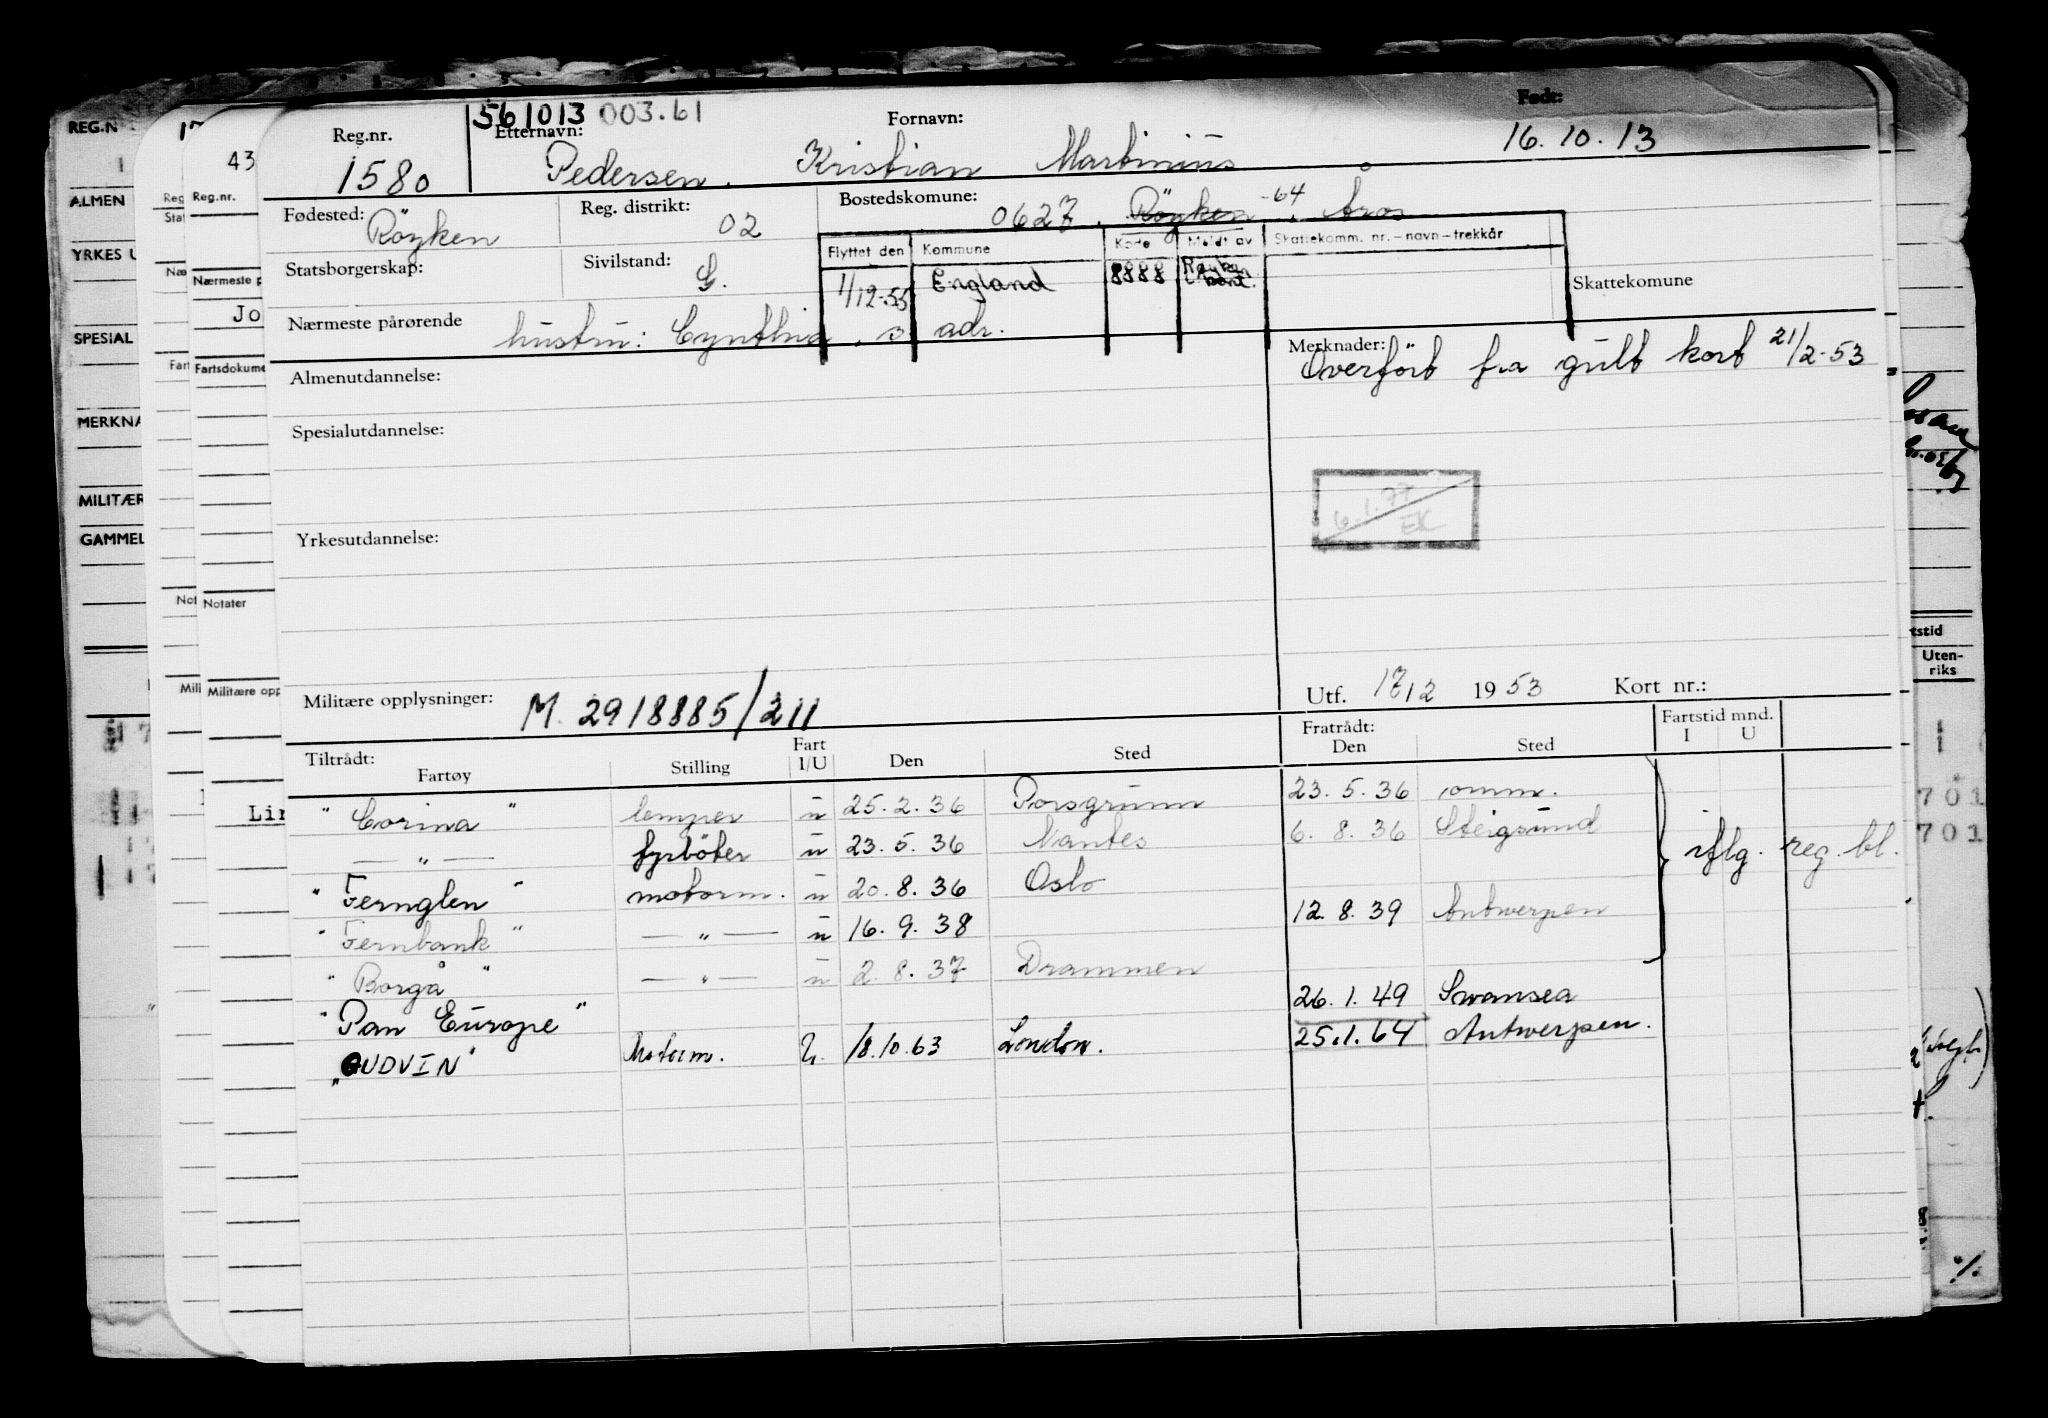 561013 003.61
Reg.nr. Etternavn: Fornavn: Født:
1580 Pedersen. Kristian Martinius 16.10.13
Fødested: Röyken Reg. distrikt: 02 Bostedskomune: 0627. Röyken -64. Åros
Statsborgerskap: Sivilstand: G.
Flyttet den Kommune Kode Meldt av Skattekomm. nr. – navn – trekkår
1/12-55 England 8888
Skattekomune
Nærmeste pårørende hustru: Cynthia. s. adr.
Merknader: Överfört fra gult kort 21/2-53
Almenutdannelse:
Spesialutdannelse:
6.1.77
EK
Yrkesutdannelse:
Militære opplysninger: M. 2918885/211
Utf. 17/2 1953 Kort nr.:
Tiltrådt: Fratrådt: Fartstid mnd.
Fartøy Stilling Fart I/U Den Sted Den Sted I U
"Corina" lemper u 25.2.36 Porsgrunn 23.5.36 omm.
— " — fyrböter u 23.5.36 Nantes 6.8.36 Steigsund
iflg. reg. bl.
"Fernglen" motorm. u 20.8.36 Oslo
"Fernbank" — " — u 16.9.38 12.8.39 Antwerpen
"Borgå" — " — u 2.8.37 Drammen
"Pan Europe" 26.1.49 Swansea
"GUDVIN" Motorm. U. 18.10.63 London. 25.1.64 Antwerpen.
REG.N
ALMEN
YRKES U
SPESIAL
MERKNA
MILITÆR
GAMMEL
43
Reg.nr.
Nærmeste p
Jo
Fartsdokume
Notater
Militære opp
Lin
tstid
Uten-
riks
701
701